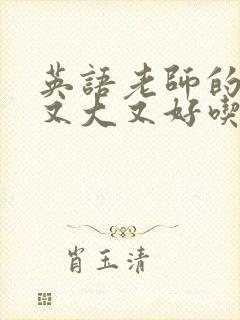 英語老師的
又大又好喫
肖玉清